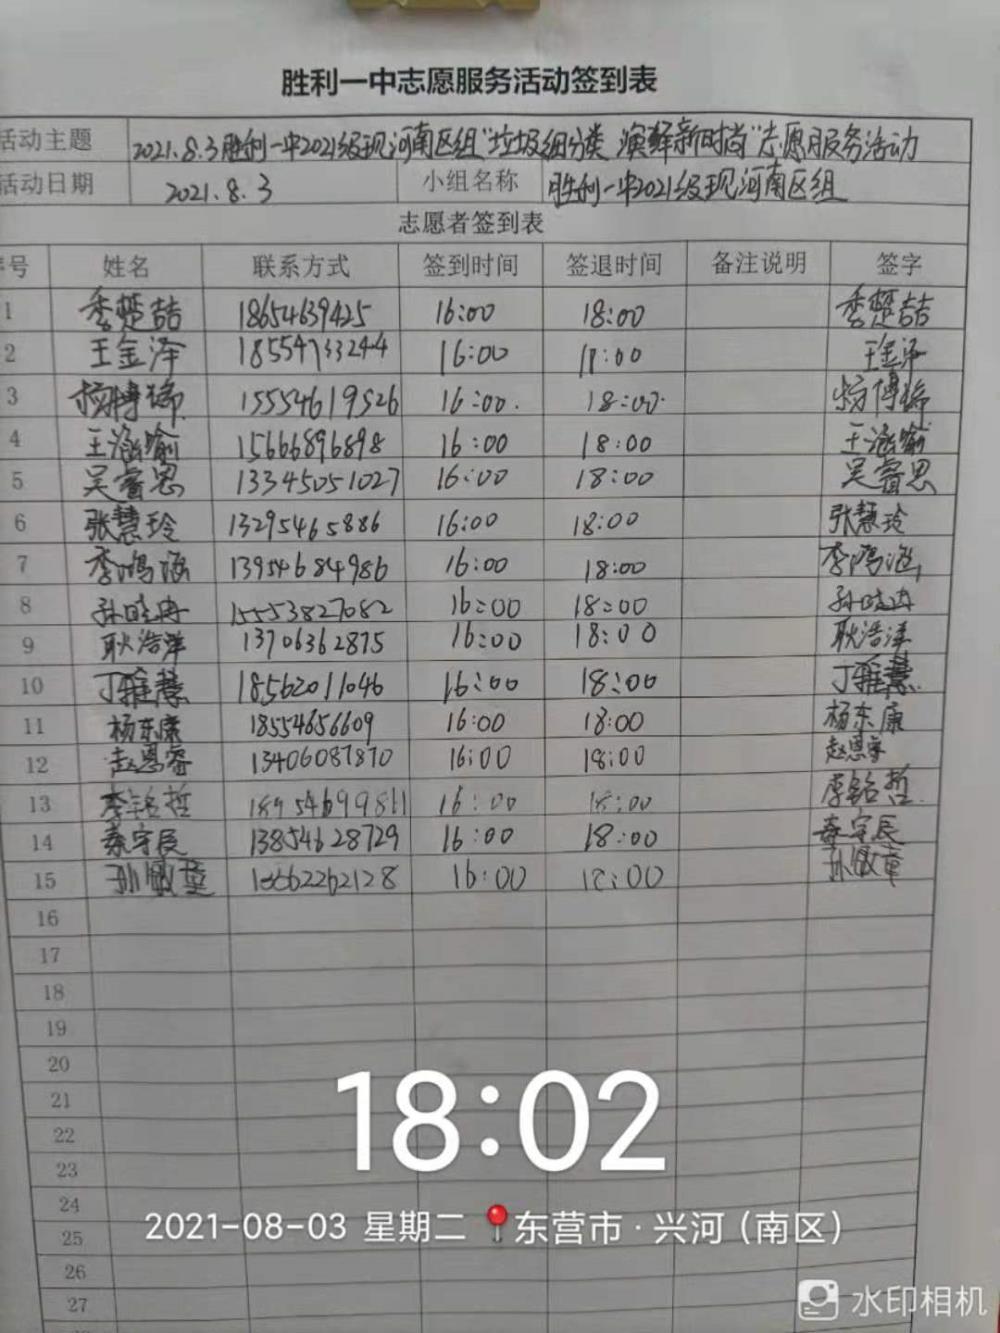 胜利一中志愿服务活动签到表
活动主题 2021.8.3胜利一中2021级现河南区组"垃圾细分类 演绎新时尚"志愿服务活动
活动日期 2021.8.3 小组名称 胜利一中2021级现河南区组
志愿者签到表
序号 姓名 联系方式 签到时间 签退时间 备注说明 签字
1 季楚喆 18654639425 16:00 18:00 季楚喆
2 王金泽 18554733244 16:00 18:00 王金泽
3 杨博 15554619526 16:00. 18:00. 杨博
4 王涵喻 15666896898 16:00 18:00 王涵喻
5 吴睿思 13345051027 16:00 18:00 吴睿思
6 张慧玲 13295465886 16:00 18:00 张慧玲
7 李鸿涵 13954684986 16:00 18:00 李鸿涵
8 孙晓冉 15553827082 16:00 18:00 孙晓冉
9 耿浩洋 13706362875 16:00 18:00 耿浩洋
10 丁雅慧 18562011046 16:00 18:00 丁雅慧
11 杨东康 18554656609 16:00 18:00 杨东康
12 赵恩睿 13406087870 16:00 18:00 赵恩睿
13 李铭哲 18954699811 16:00 18:00 李铭哲
14 秦宇辰 13854628729 16:00 18:00 秦宇辰
15 孙 16:00 18:00 孙
16
17
18
19
20
21
22
23
24
25
26
27
18:02
2021-08-03 星期二 东营市·兴河(南区)
水印相机